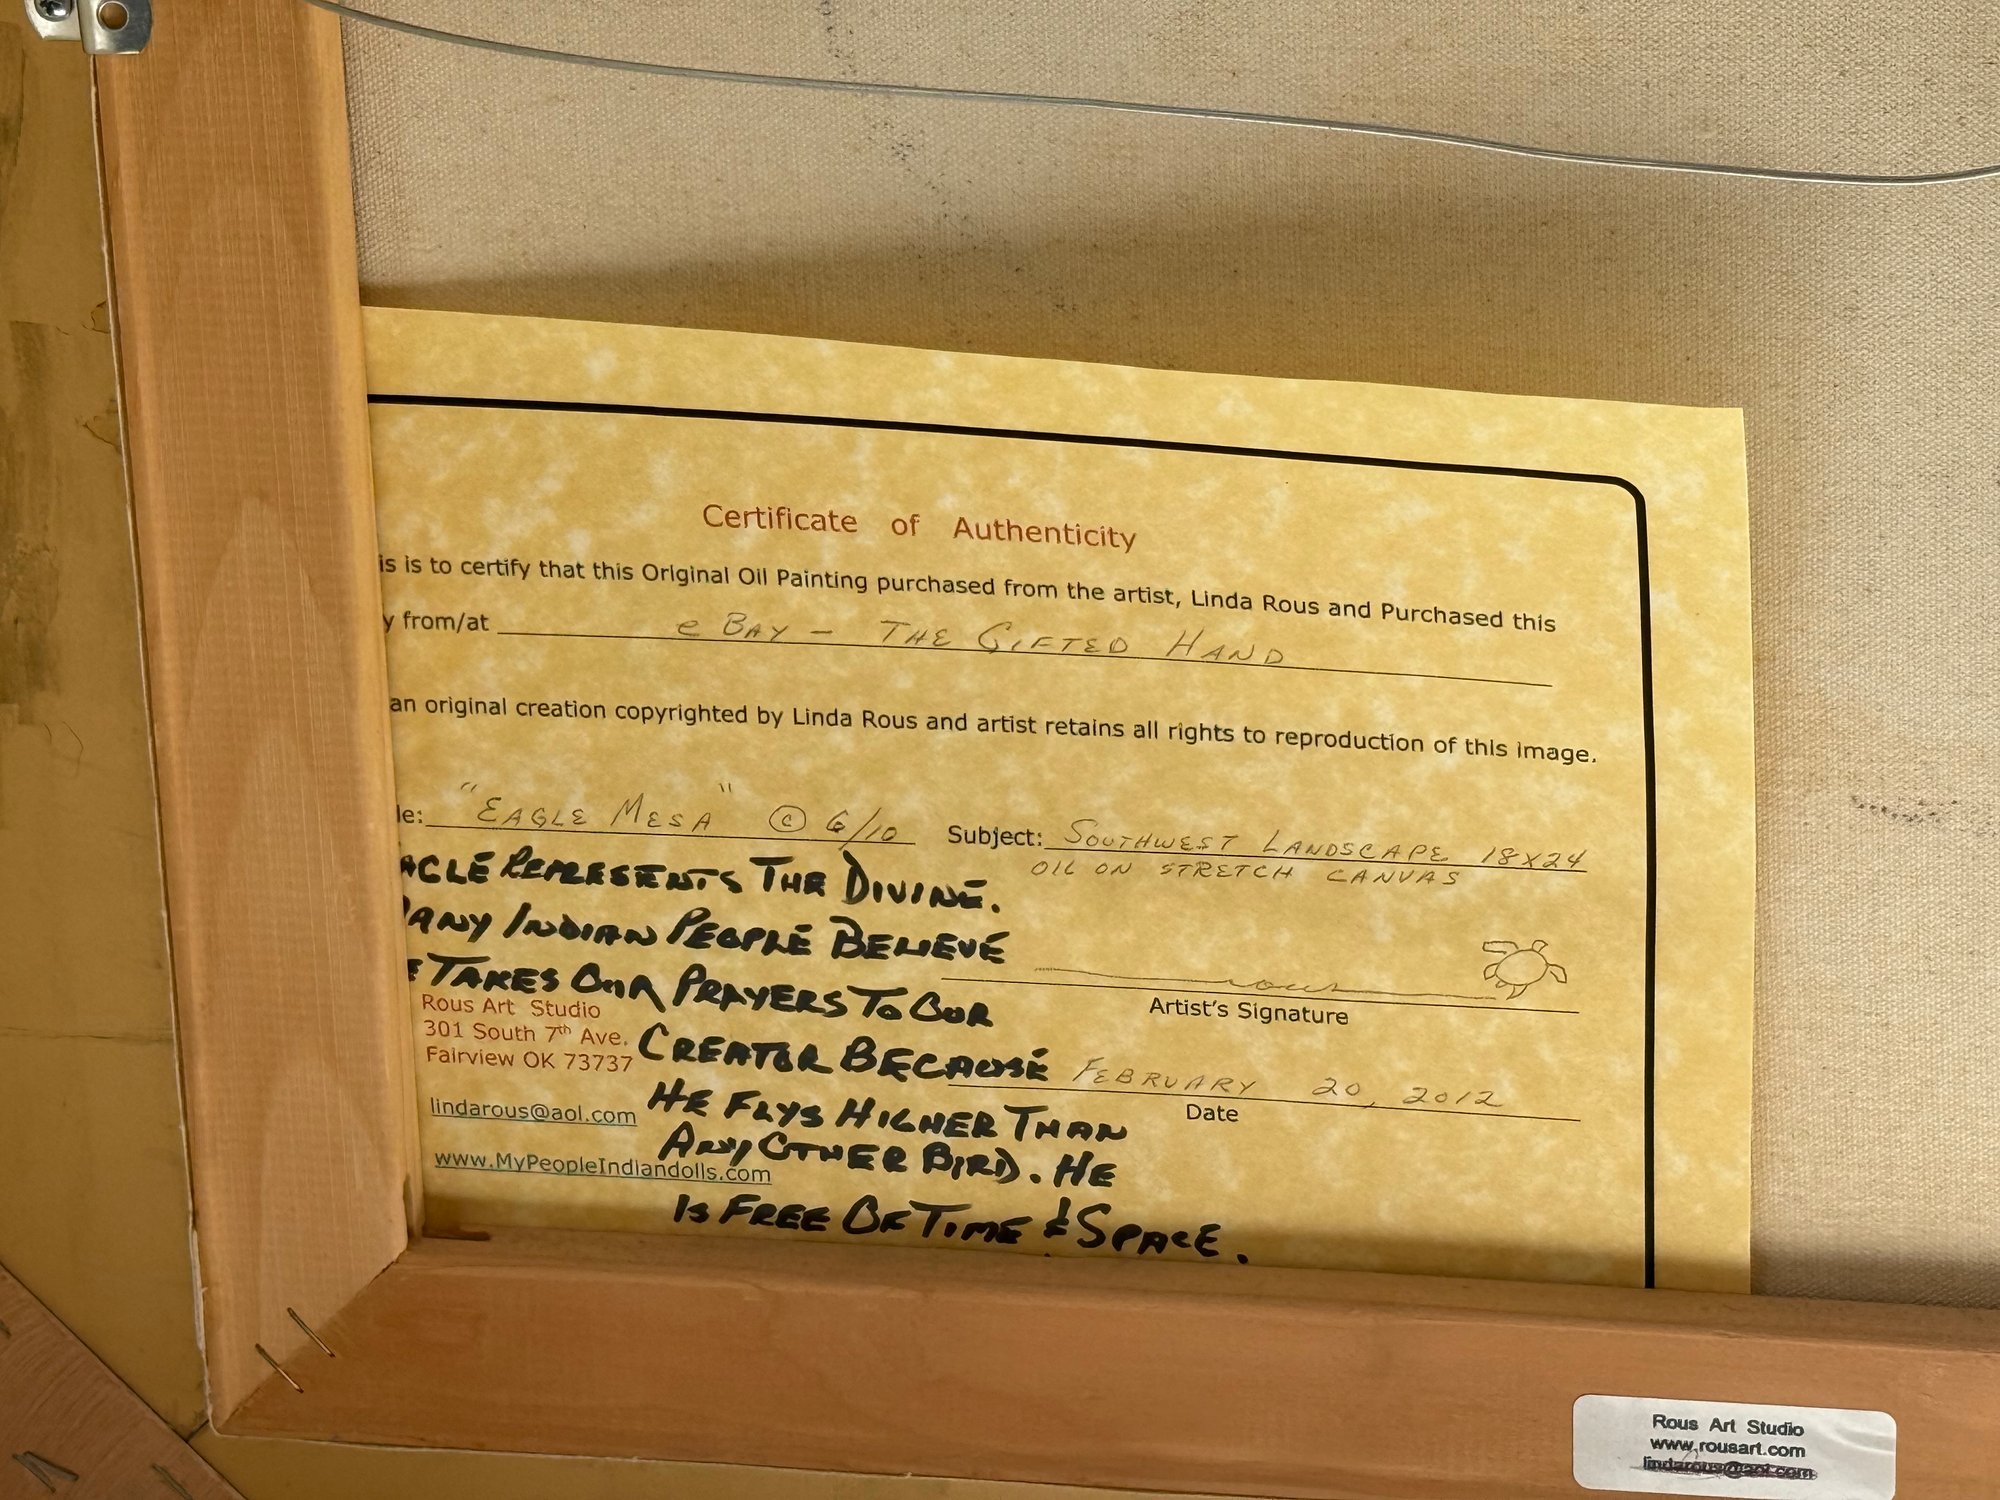 Certificate of Authenticity
is is to certify that this Original Oil Painting purchased from the artist, Linda Rous and Purchased this
y from/at eBay - The Gifted Hand
an original creation copyrighted by Linda Rous and artist retains all rights to reproduction of this image.
le: "Eagle Mesa" © 6/10 Subject: Southwest Landscape 18x24
oil on stretch canvas
agle Represents The Divine.
Many Indian People Believe
e Takes Our Prayers To Our
Creator Because
He Flys Higher Than
Any Other Bird. He
Is Free Of Time & Space.
Rous
Artist's Signature
February 20, 2012
Date
Rous Art Studio
301 South 7th Ave.
Fairview OK 73737
lindarous@aol.com
www.MyPeopleIndiandolls.com
Rous Art Studio
www.rousart.com
lindarous@aol.com